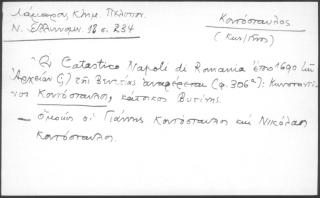 Λάμπρος, Κτημ. Πελοπον.
Ν. Ἑλληνομν. 18 σ. 234
Κοντόπαυλος
(Κων/τῖνος)
Ὁ Catastico Napoli di Romania ἔτος 1690 (τῶν
Ἀρχείων ς) τῆς Βενετίας ἀναφέρεται (φ. 306ᵃ): Κωνσταντῖ-
νος Κοντόπαυλος, κάτοικος Βυτίνης
— ὁμοίως οἱ Γιάννης Κοντόπαυλος καὶ Νικόλαος
Κοντόπαυλος.